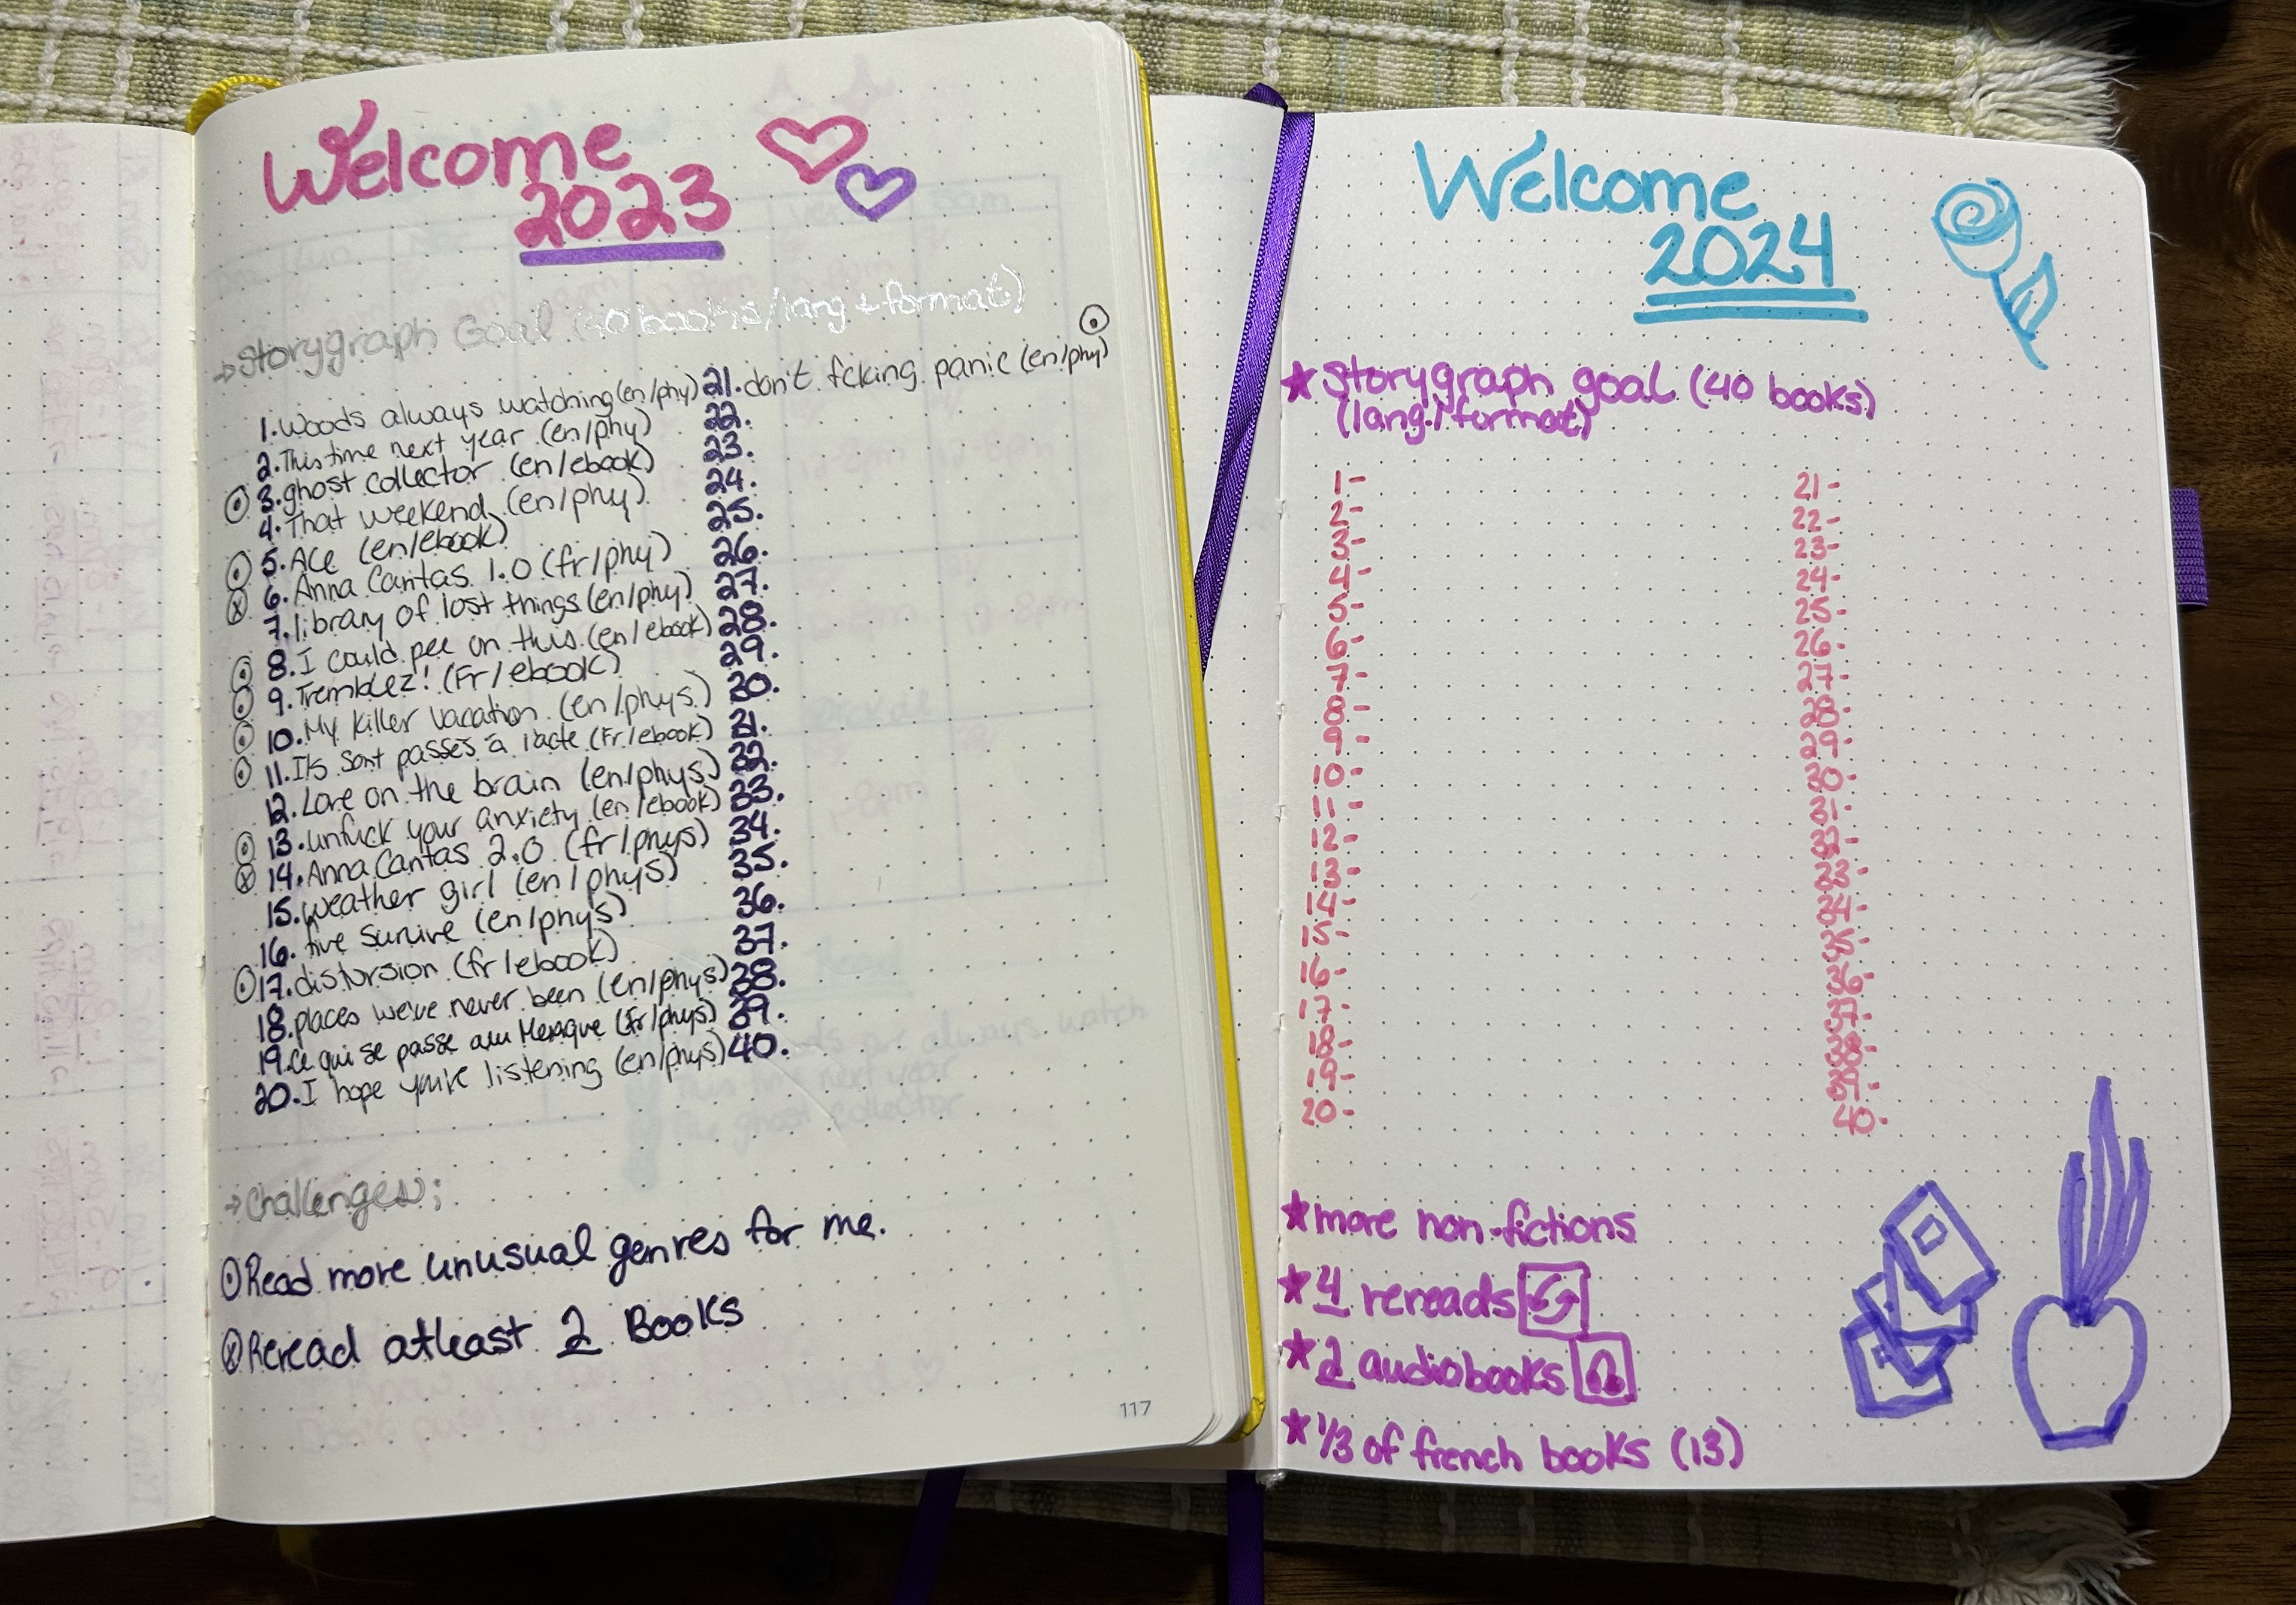 Welcome
2023
→Storygraph Goal (40 books/lang + format)
1. Woods always watching (en/phy)
2. This time next year (en/phy)
3. ghost collector (en/ebook)
4. That weekend (en/phy)
5. Ace (en/ebook)
6. Anna Caritas 1.0 (fr/phy)
7. library of lost things (en/phy)
8. I could pee on this (en/ebook)
9. Tremblez! (Fr/ebook)
10. My killer vacation (en/phys)
11. Ils sont passés à l'acte (Fr/ebook)
12. Love on the brain (en/phys)
13. unfuck your anxiety (en/ebook)
14. Anna Caritas 2.0 (fr/phys)
15. weather girl (en/phys)
16. five survive (en/phys)
17. distorsion (fr/ebook)
18. places we've never been (en/phys)
19. Ce qui se passe au Mexique (Fr/phys)
20. I hope you're listening (en/phys)
21. don't fcking panic (en/phy)
22.
23.
24.
25.
26.
27.
28.
29.
30.
31.
32.
33.
34.
35.
36.
37.
38.
39.
40.
→Challenges;
Read more unusual genres for me.
Reread atleast 2 Books
117
Welcome
2024
★Storygraph goal (40 books)
(lang./format)
1-
2-
3-
4-
5-
6-
7-
8-
9-
10-
11-
12-
13-
14-
15-
16-
17-
18-
19-
20-
21-
22-
23-
24-
25-
26-
27-
28-
29-
30-
31-
32-
33-
34-
35-
36-
37-
38-
39-
40-
★more non-fictions
★4 rereads
★2 audiobooks
★1/3 of french books (13)